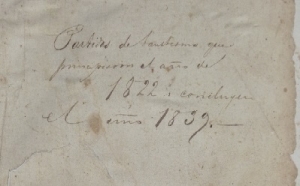 Partidas de bautismos, que
principiaron el año de
1822 i concluyen
el año 1839.—